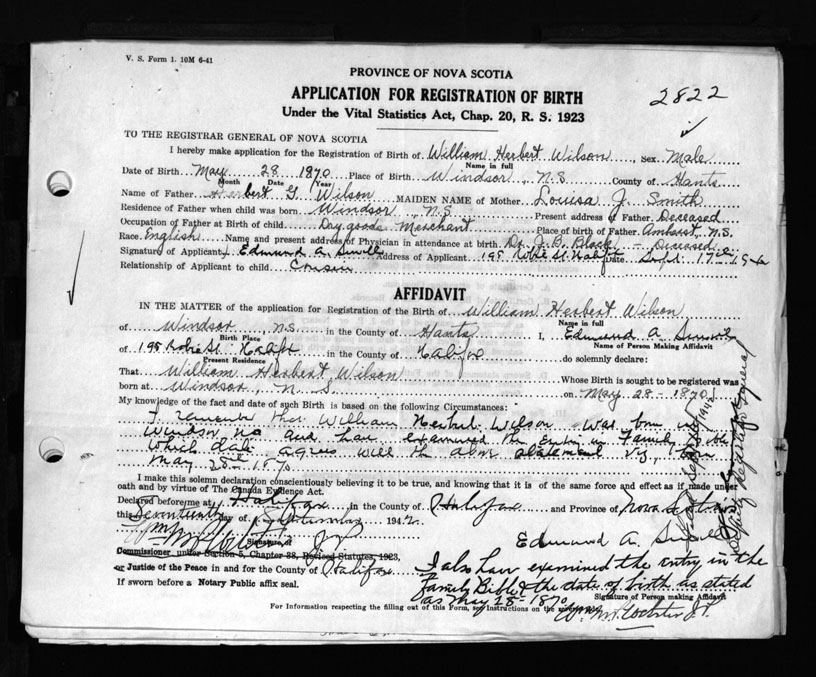 V. S. Form 1. 10M 6-41
PROVINCE OF NOVA SCOTIA
APPLICATION FOR REGISTRATION OF BIRTH
2822
Under the Vital Statistics Act, Chap. 20, R. S. 1923
TO THE REGISTRAR GENERAL OF NOVA SCOTIA
I hereby make application for the Registration of Birth of William Herbert Wilson, Sex Male
Name in full
Date of Birth May 28 1870 Place of Birth Windsor, N.S County of Hants
Month Date Year
Name of Father Herbert G. Wilson MAIDEN NAME of Mother Louisa J. Smith
Residence of Father when child was born Windsor, N.S. Present address of Father Deceased
Occupation of Father at Birth of child Dry goods Merchant Place of birth of Father Amherst, N.S.
Race English Name and present address of Physician in attendance at birth Dr J. B. Black - Deceased
Signature of Applicant Edmund A. Address of Applicant 195 Robie St Halifx Date Sept. 17th 1942
Relationship of Applicant to child Cousin
AFFIDAVIT
IN THE MATTER of the application for Registration of the Birth of William Herbert Wilson
Name in full
of Windsor, N.S. in the County of Hants I, Edmund A.
Birth Place
Name of Person Making Affidavit
of 195 Robie St. Halifx in the County of Halifax do solemnly declare:
Present Residence
That William Herbert Wilson Whose Birth is sought to be registered was
born at Windsor, N. S. on May 28 - 1870
My knowledge of the fact and date of such Birth is based on the following Circumstances:
I remember that William Herbert Wilson was born in
Windsor NS and have examined the Entry in Family Bible
which date agrees with the above statement viz, born
May 28th 1870
I make this solemn declaration conscientiously believing it to be true, and knowing that it is of the same force and effect as if made under
oath and by virtue of The Canada Evidence Act.
Declared before me at Halifax in the County of Halifax and Province of Nova Scotia
this Seventeenth day of September 1942
Edmund A.
Wm M. Webster J P
Signature of
Commissioner under Section 5, Chapter 38, Revised Statutes, 1923,
or Justice of the Peace in and for the County of Halifax
If sworn before a Notary Public affix seal.
I also have examined the entry in the
Family Bible & the date of birth as stated
as May 28 - 1870
Signature of Person making Affidavit
Wm M. Webster J.P.
For Information respecting the filling out of this Form, see Instructions on the
Deputy Registrar General